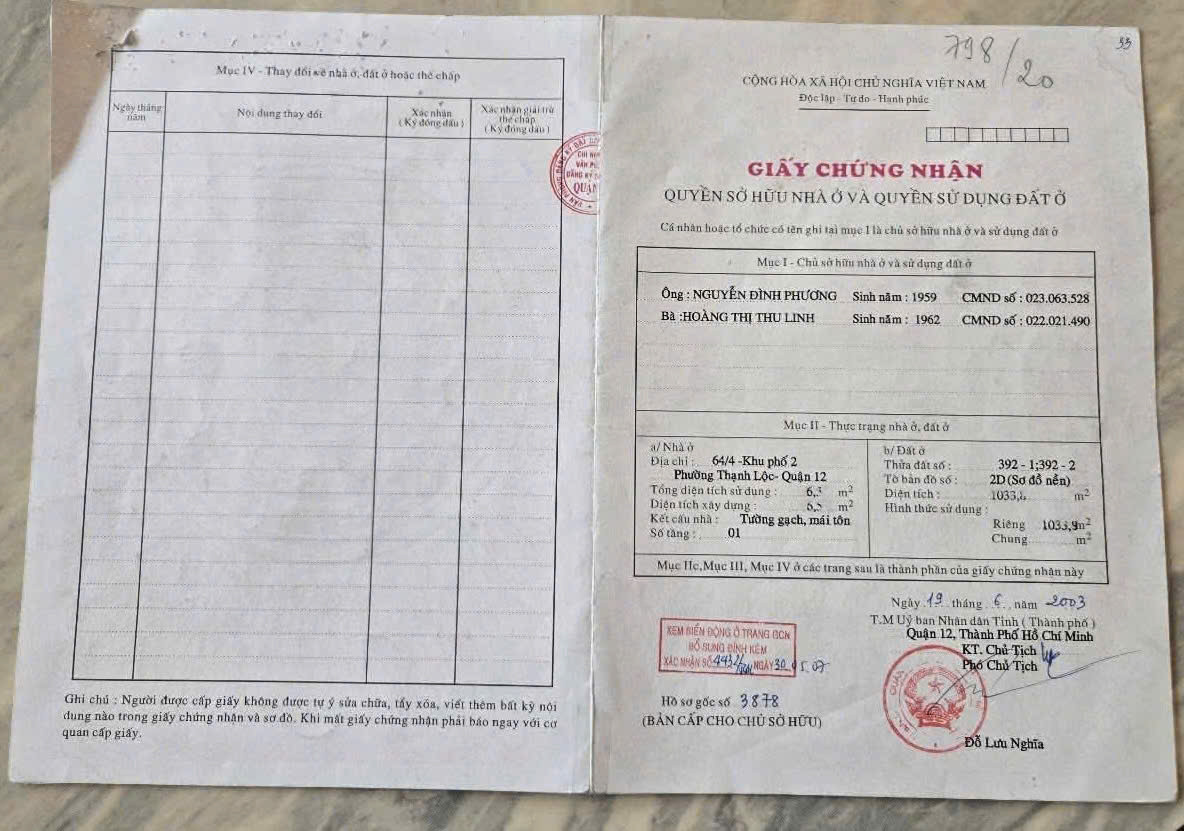 Mục IV - Thay đổi về nhà ở, đất ở hoặc thế chấp
Ngày tháng năm
Nội dung thay đổi
Xác nhận
( Ký đóng dấu )
Xác nhận giải trừ thế chấp
( Ký đóng dấu )
Ghi chú : Người được cấp giấy không được tự ý sửa chữa, tẩy xóa, viết thêm bất kỳ nội
dung nào trong giấy chứng nhận và sơ đồ. Khi mất giấy chứng nhận phải báo ngay với cơ
quan cấp giấy.
798/20
33
CỘNG HÒA XÃ HỘI CHỦ NGHĨA VIỆT NAM
Độc lập - Tự do - Hạnh phúc
GIẤY CHỨNG NHẬN
QUYỀN SỞ HỮU NHÀ Ở VÀ QUYỀN SỬ DỤNG ĐẤT Ở
Cá nhân hoặc tổ chức có tên ghi tại mục I là chủ sở hữu nhà ở và sử dụng đất ở
Mục I - Chủ sở hữu nhà ở và sử dụng đất ở
Ông : NGUYỄN ĐÌNH PHƯƠNG Sinh năm : 1959 CMND số : 023.063.528
Bà :HOÀNG THỊ THU LINH Sinh năm : 1962 CMND số : 022.021.490
Mục II - Thực trạng nhà ở, đất ở
a/ Nhà ở
Địa chỉ : 64/4 -Khu phố 2
Phường Thạnh Lộc- Quận 12
Tổng diện tích sử dụng : m²
Diện tích xây dựng : m²
Kết cấu nhà : Tường gạch, mái tôn
Số tầng : 01
b/ Đất ở
Thửa đất số : 392 - 1;392 - 2
Tờ bản đồ số : 2D (Sơ đồ nền)
Diện tích : m²
Hình thức sử dụng :
Riêng 1033,9m²
Chung m²
Mục IIc,Mục III, Mục IV ở các trang sau là thành phần của giấy chứng nhận này
Ngày 19 tháng 6 năm 2003
T.M Uỷ ban Nhân dân Tỉnh ( Thành phố )
Quận 12, Thành Phố Hồ Chí Minh
KT. Chủ Tịch
Phó Chủ Tịch
XEM BIẾN ĐỘNG Ở TRANG GCN
BỔ SUNG ĐÍNH KÈM
XÁC NHẬN SỐ NGÀY 30
Hồ sơ gốc số 3878
(BẢN CẤP CHO CHỦ SỞ HỮU)
Đỗ Lưu Nghĩa